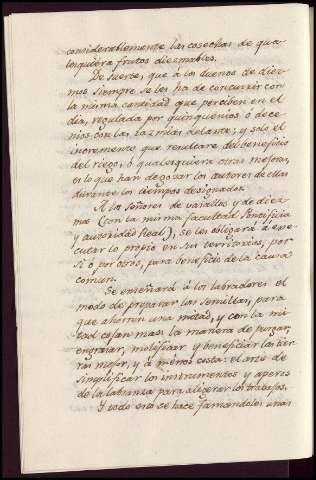 considerablemente las cosechas de qua-
lesquiera frutos diezmables.
De suerte, que á los dueños de diez-
mos siempre se les ha de concurrir con
la misma cantidad que perciben en el
dia, regulada por quinquenios ó dece-
nios con las tazmias delante; y solo el
incremento que resultare del beneficio
del riego, ó qualesquiera otras mejoras,
es lo que han de gozar los autores de ellas
durante los tiempos designados.
A los señores de vasallos y de diez-
mos (con la misma facultad Pontificia
y autoridad Real), se les obligará á exe-
cutar lo propio en sus territorios, por
sí ó por otros, para beneficio de la causa
comun.
Se enseñará á los labradores el
modo de preparar las semillas, para
que ahorren una mitad, y con la mi-
tad cojan mas: la manera de purgar,
engrasar, metifizar y beneficiar las tier-
ras mejor, y á menos costa: el arte de
simplificar los instrumentos y aperos
de la labranza para aligerar los trabajos.
Y todo esto se hace formandoles unas